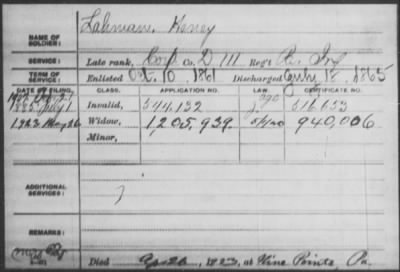 Lahman, Henry
NAME OF SOLDIER:
SERVICE: Late rank, Corp Co. D 111 Reg't Pa. Inf
TERM OF SERVICE: Enlisted Oct. 10, 1861 Discharged July 18, 1865
DATE OF FILING. CLASS. APPLICATION NO. LAW. CERTIFICATE NO.
1885 July 1 Invalid, 544,132 516,653
1923 May 26 Widow, 1,205,939 940,006
Minor,
ADDITIONAL SERVICES:
REMARKS:
Died 192 , at Nine Points Pa.